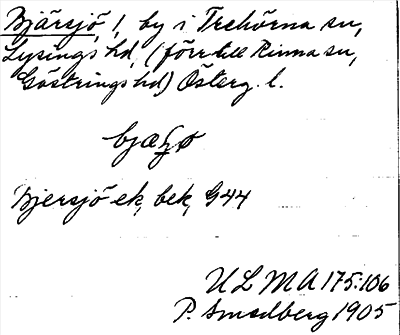 Bjärsjö, 1, by i Trehörna sn,
Lysings hd, (förr till Rinna sn,
Göstrings hd) Österg. l.
Bjersjö ek, bek, G44
ULMA 175:106
P. Smedberg 1905